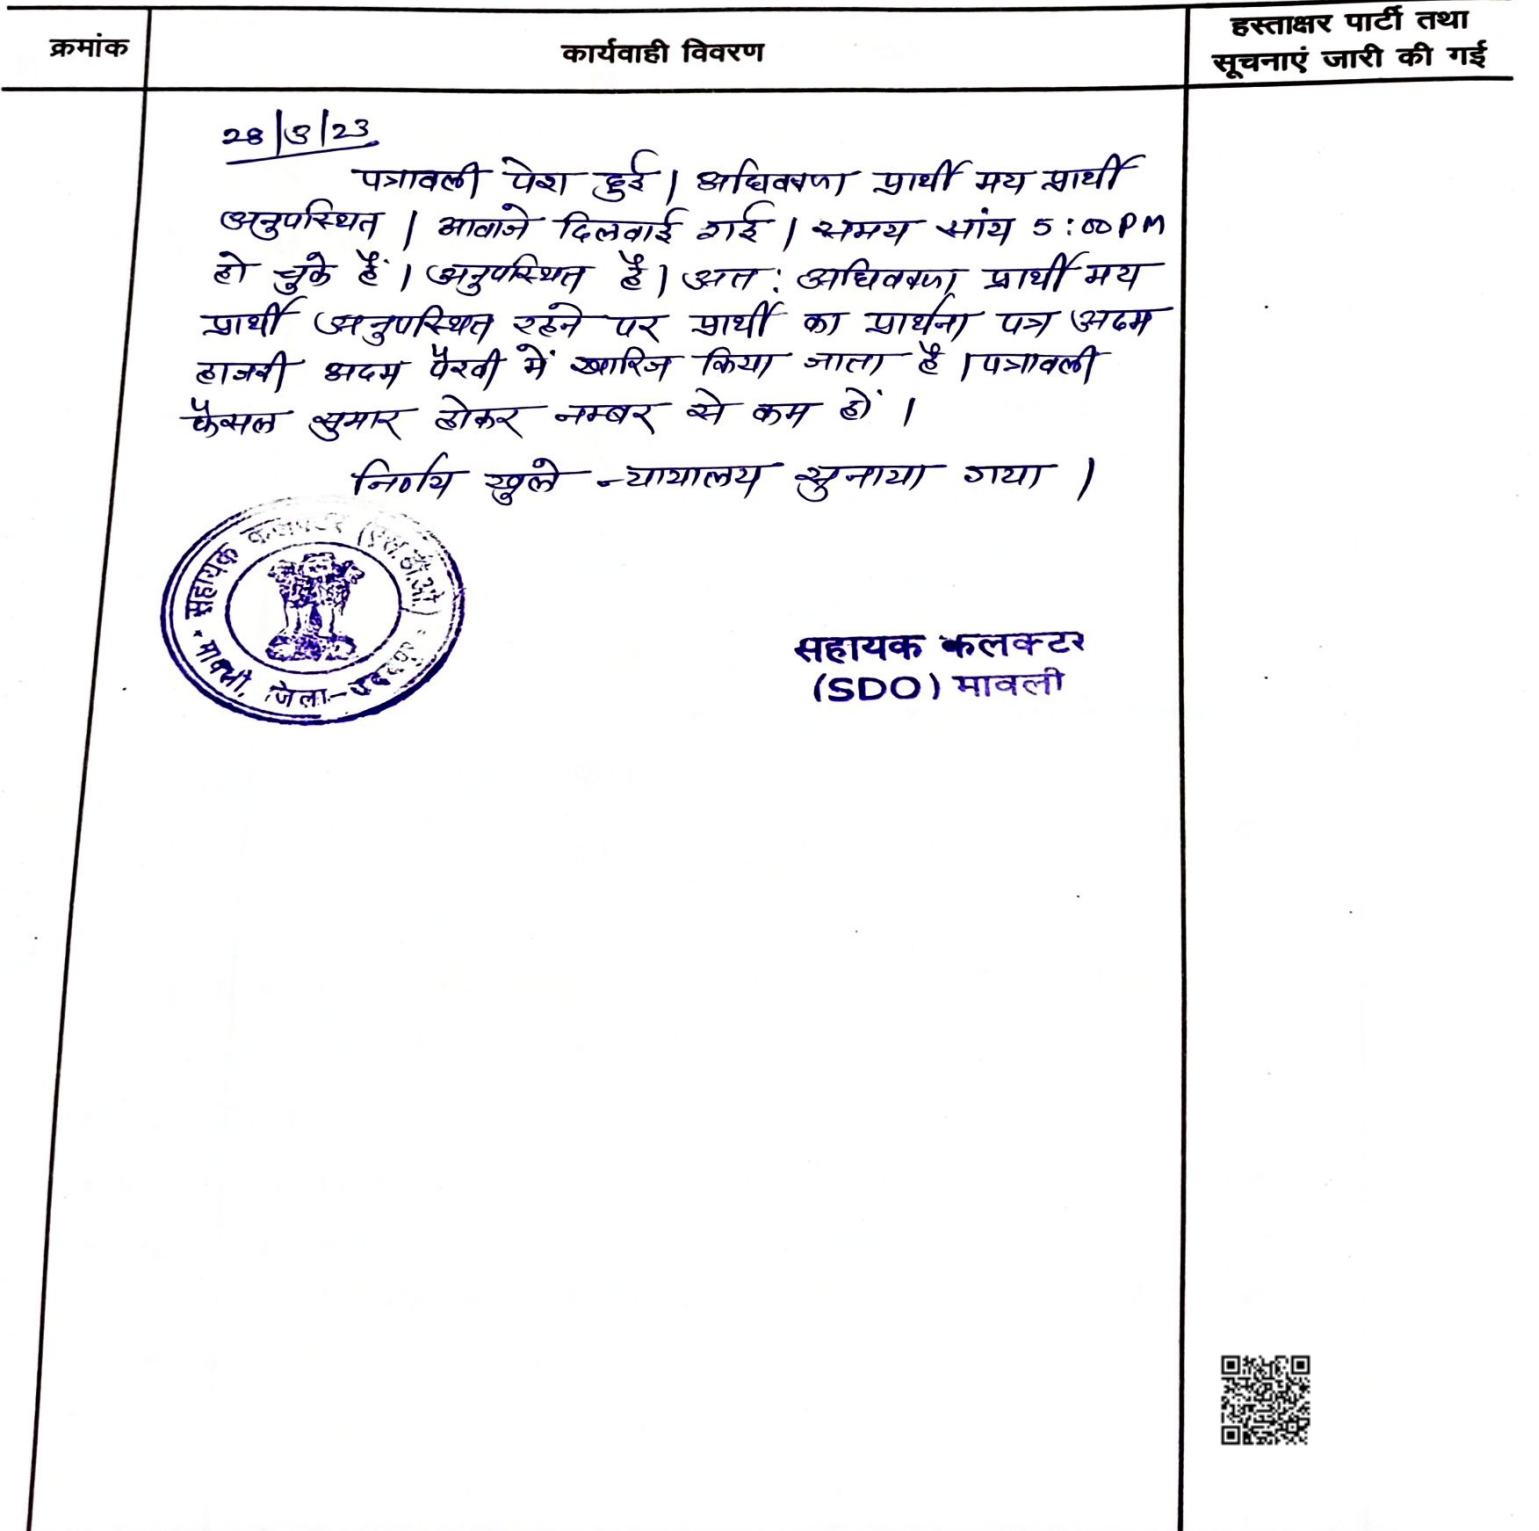 क्रमांक
कार्यवाही विवरण
हस्ताक्षर पार्टी तथा
सूचनाएं जारी की गई
28/3/23
पत्रावली पेश हुई। अधिवक्ता प्रार्थी मय प्रार्थी
अनुपस्थित। आवाजे दिलवाई गई। समय सांय 5:00PM
हो चुके हैं। अनुपस्थित है। अत: अधिवक्ता प्रार्थी मय
प्रार्थी अनुपस्थित रहने पर प्रार्थी का प्रार्थना पत्र अदम
हाजरी अदम पैरवी में खारिज किया जाता है। पत्रावली
फैसल सुमार होकर नम्बर से कम हों।
निर्णय खुले न्यायालय सुनाया गया।
सहायक कलक्टर (एस.डी.ओ)
मावली, जिला-उदयपुर
सहायक कलक्टर
(SDO) मावली